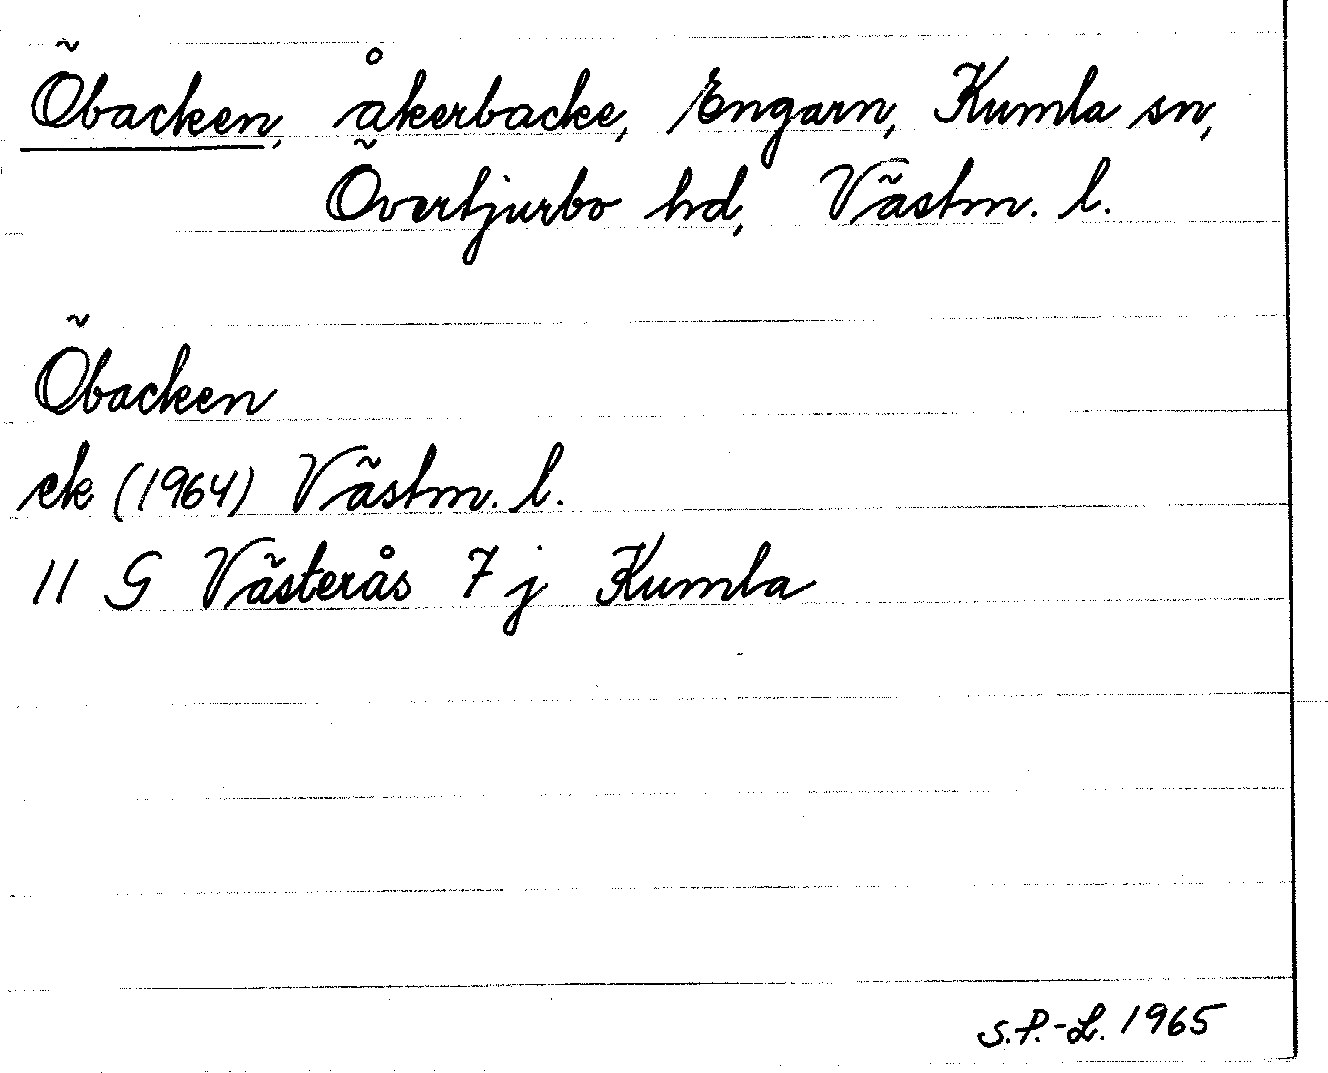 Öbacken, åkerbacke, Engarn, Kumla sn,
Övertjurbo hd, Västm. l.
Öbacken
ek (1964) Västm. l.
11 G Västerås 7 j Kumla
S.P.-L. 1965